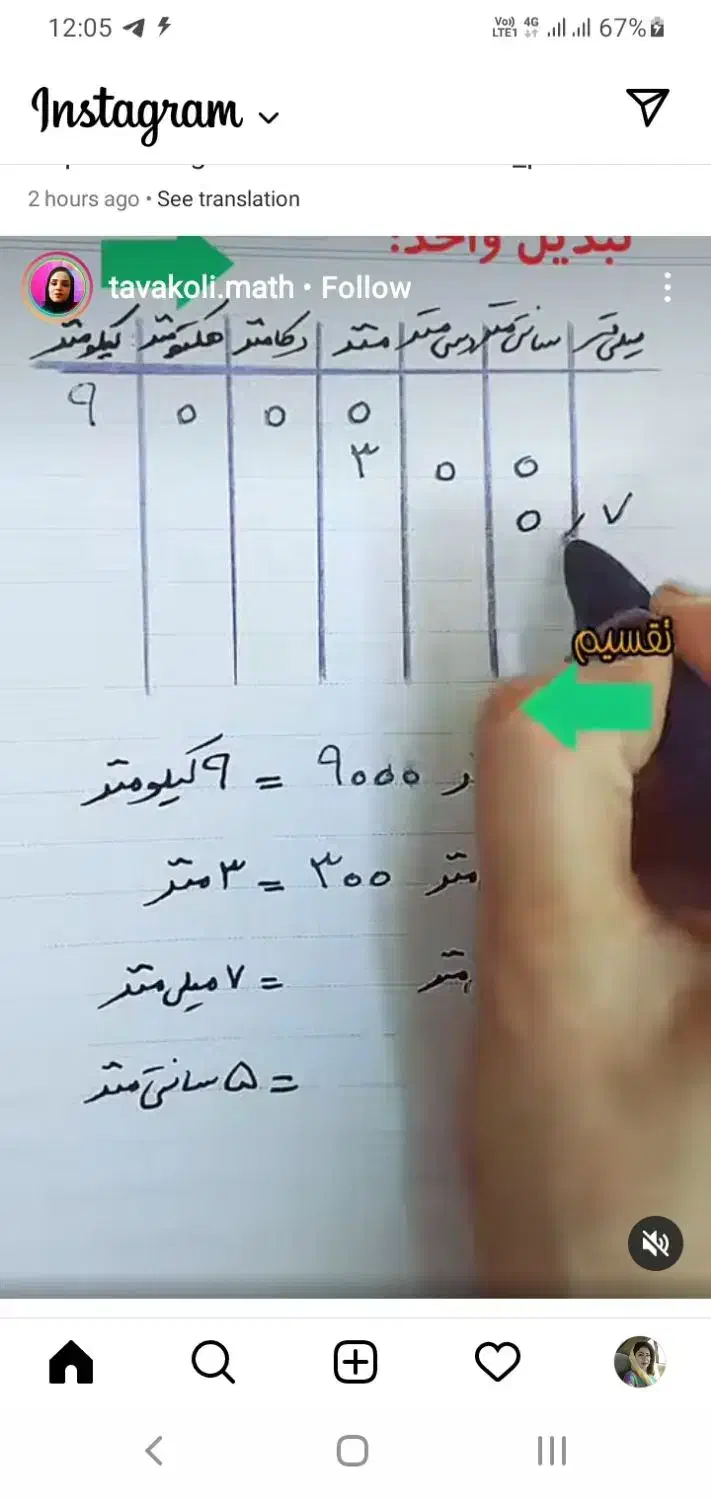 12:05
Vo) 4G LTE1 67%
Instagram
2 hours ago • See translation
تبدیل واحد:
tavakoli.math • Follow
کیلومتر هکتومتر دکامتر متر دسی‌متر سانتی‌متر میلی‌متر
۹ ۰ ۰ ۰
۳ ۰ ۰
۰٫۷
تقسیم
۹ کیلومتر = ۹۰۰۰
۳ متر = ۳۰۰
۷ میلی متر =
۵ سانتی متر =